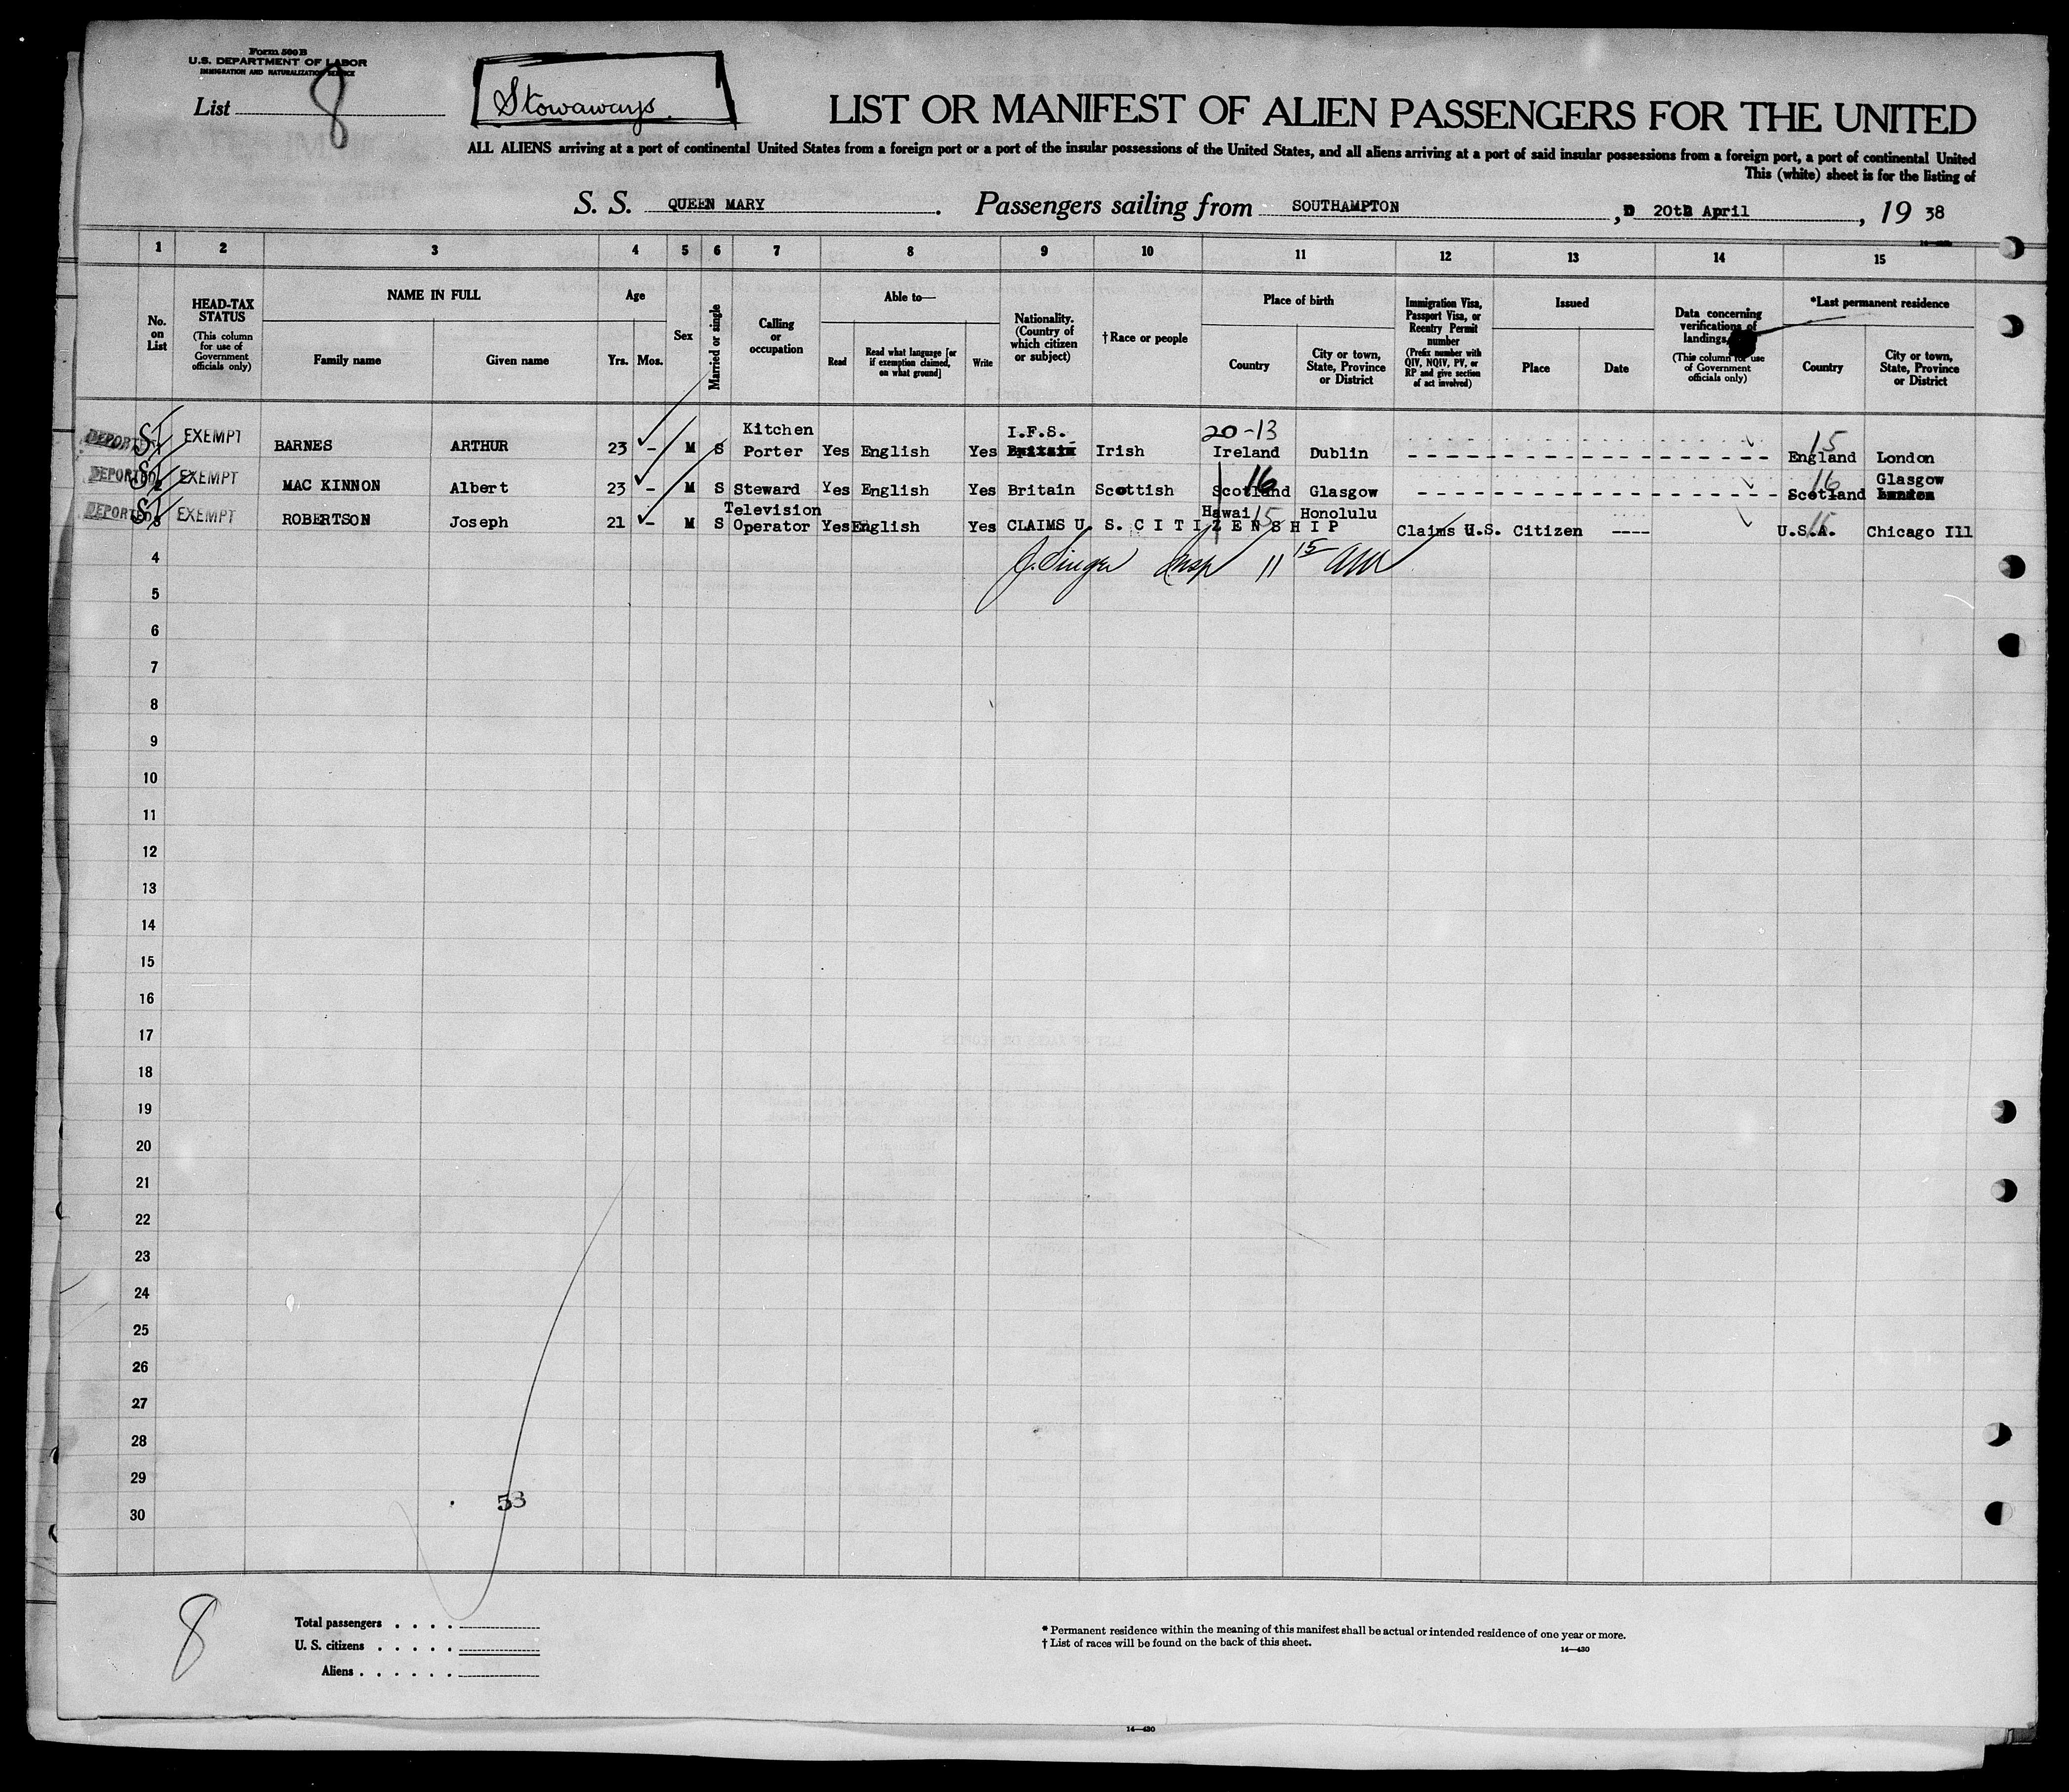 Form 500 B
U.S. DEPARTMENT OF LABOR
IMMIGRATION AND NATURALIZATION SERVICE
List 8
Stowaways.
LIST OR MANIFEST OF ALIEN PASSENGERS FOR THE UNITED
ALL ALIENS arriving at a port of continental United States from a foreign port or a port of the insular possessions of the United States, and all aliens arriving at a port of said insular possessions from a foreign port, a port of continental United
This (white) sheet is for the listing of
S. S. QUEEN MARY. Passengers sailing from SOUTHAMPTON, 20th April, 19 38
1 2 3 4 5 6 7 8 9 10 11 12 13 14 15
No. on List
HEAD-TAX STATUS (This column for use of Government officials only)
NAME IN FULL
Family name
Given name
Age
Yrs. Mos.
Sex
Married or single
Calling or occupation
Able to—
Read
Read what language [or if exemption claimed, on what ground]
Write
Nationality. (Country of which citizen or subject)
†Race or people
Place of birth
Country
City or town, State, Province or District
Immigration Visa, Passport Visa, or Reentry Permit number (Prefix number with QIV, NQIV, PV, or RP and give section of act involved)
Issued
Place
Date
Data concerning verifications of landings, (This column for use of Government officials only)
*Last permanent residence
Country
City or town, State, Province or District
DEPORTED ST EXEMPT BARNES ARTHUR 23 - M S Kitchen Porter Yes English Yes I.F.S. Britain Irish 20-13 Ireland Dublin 15 England London
DEPORTED ST 2 EXEMPT MAC KINNON Albert 23 - M S Steward Yes English Yes Britain Scottish 16 Scotland Glasgow 16 Scotland Glasgow London
DEPORTED ST 3 EXEMPT ROBERTSON Joseph 21 - M S Television Operator Yes English Yes CLAIMS U. S. CITIZENSHIP Hawai 15 Honolulu Claims U.S. Citizen ---- 15 U.S.A. Chicago Ill
4 J. Singer Insp 11 15 AM
5
6
7
8
9
10
11
12
13
14
15
16
17
18
19
20
21
22
23
24
25
26
27
28
29
53
30
8
Total passengers . . . .
U. S. citizens . . . . .
Aliens . . . . . .
* Permanent residence within the meaning of this manifest shall be actual or intended residence of one year or more.
† List of races will be found on the back of this sheet.
14—430
14—430